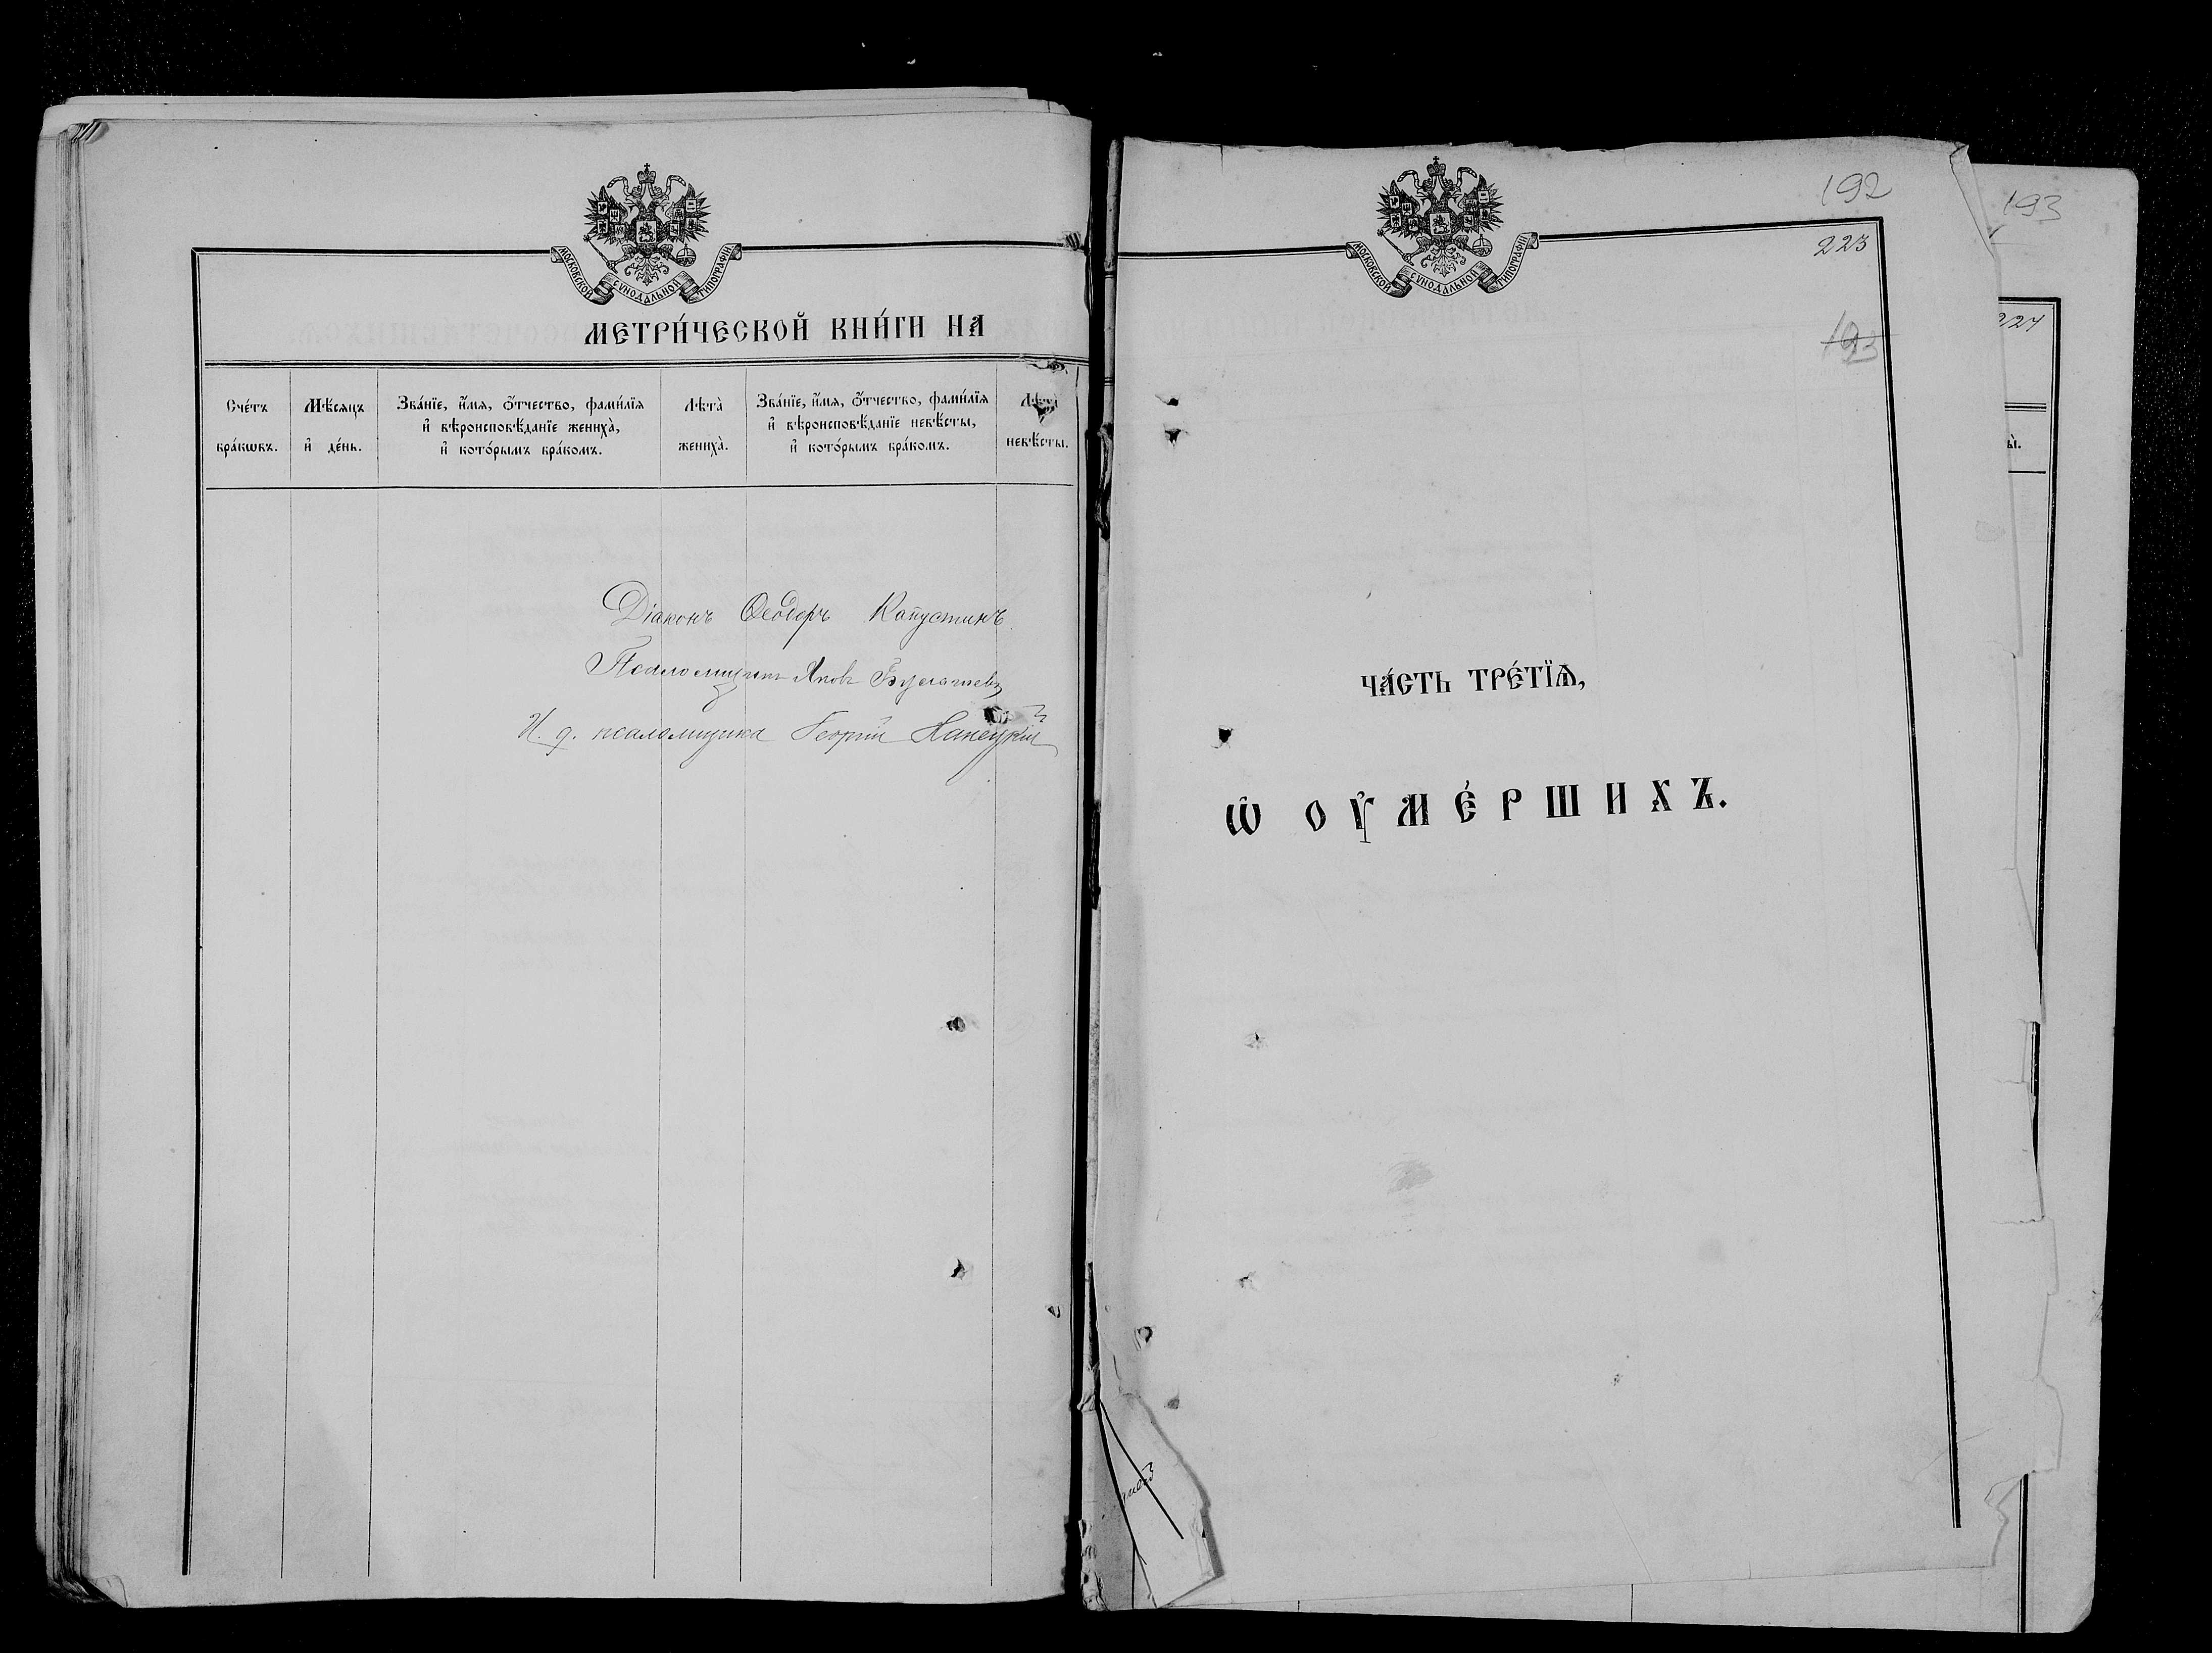 МОСКОВСКОЙ СУНОДАЛЬНОЙ ТИПОГРАФІИ
МЕТРИ́ЧЕСКОЙ КНИ́ГИ НА
Сче́тъ бра́кѡвъ.
Мѣ́сяцъ и҆ де́нь.
Зва́нїе, и҆́мя, ѻ҆́тчество, фами́лїя
и҆ вѣроисповѣ́данїе жениха̀,
и҆ кото́рымъ бра́комъ.
Лѣта̀ жениха̀.
Зва́нїе, и҆́мя, ѻ҆́тчество, фами́лїя
и҆ вѣроисповѣ́данїе невѣ́сты,
и҆ кото́рымъ бра́комъ.
Лѣта̀ невѣ́сты.
Діаконъ Ѳеодоръ Капустинъ
Псаломщикъ Яковъ
И. д. псаломщика Георгій
МОСКОВСКОЙ СУНОДАЛЬНОЙ ТИПОГРАФІИ
192
223
193
ЧА́СТЬ ТРЕ́ТЇѦ,
Ѡ҆ ОУ҆МЕ́РШИХЪ.
193
224